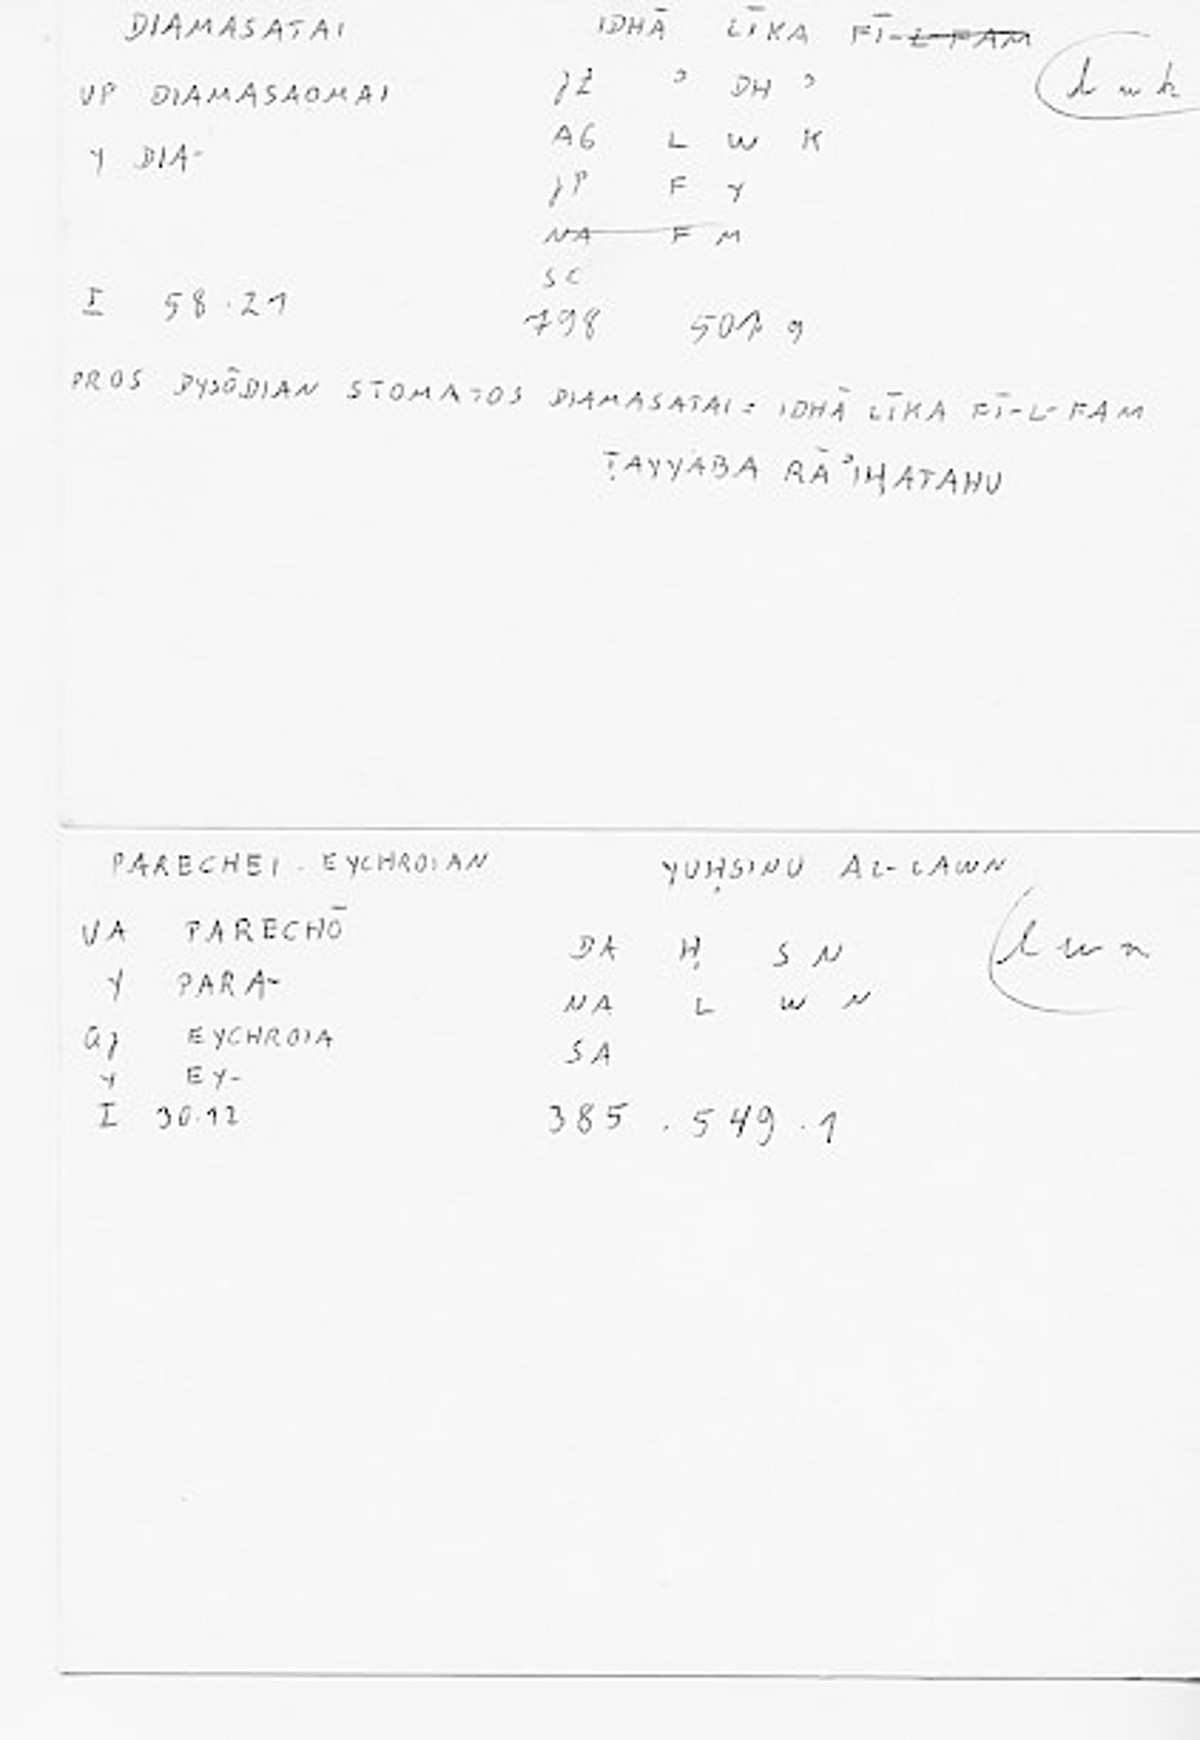 DIAMASATAI IDHĀ LĪKA FĪ-L-FAM
VP DIAMASAOMAI JZ ʾ DH ʾ lwk
Y DIA- AG L W K
JP F Y
NA F M
SC
I 58.21 798 501 9
PROS DYSŌDIAN STOMATOS DIAMASATAI = IDHĀ LĪKA FĪ-L-FAM
ṬAYYABA RĀʾIḤATAHU
PARECHEI . EYCHROIAN YUḤSINU AL-LAWN
VA PARECHŌ DA Ḥ S N lwn
Y PARA- NA L W N
GJ EYCHROIA SA
Y EY-
I 30.12 385 . 549 . 1